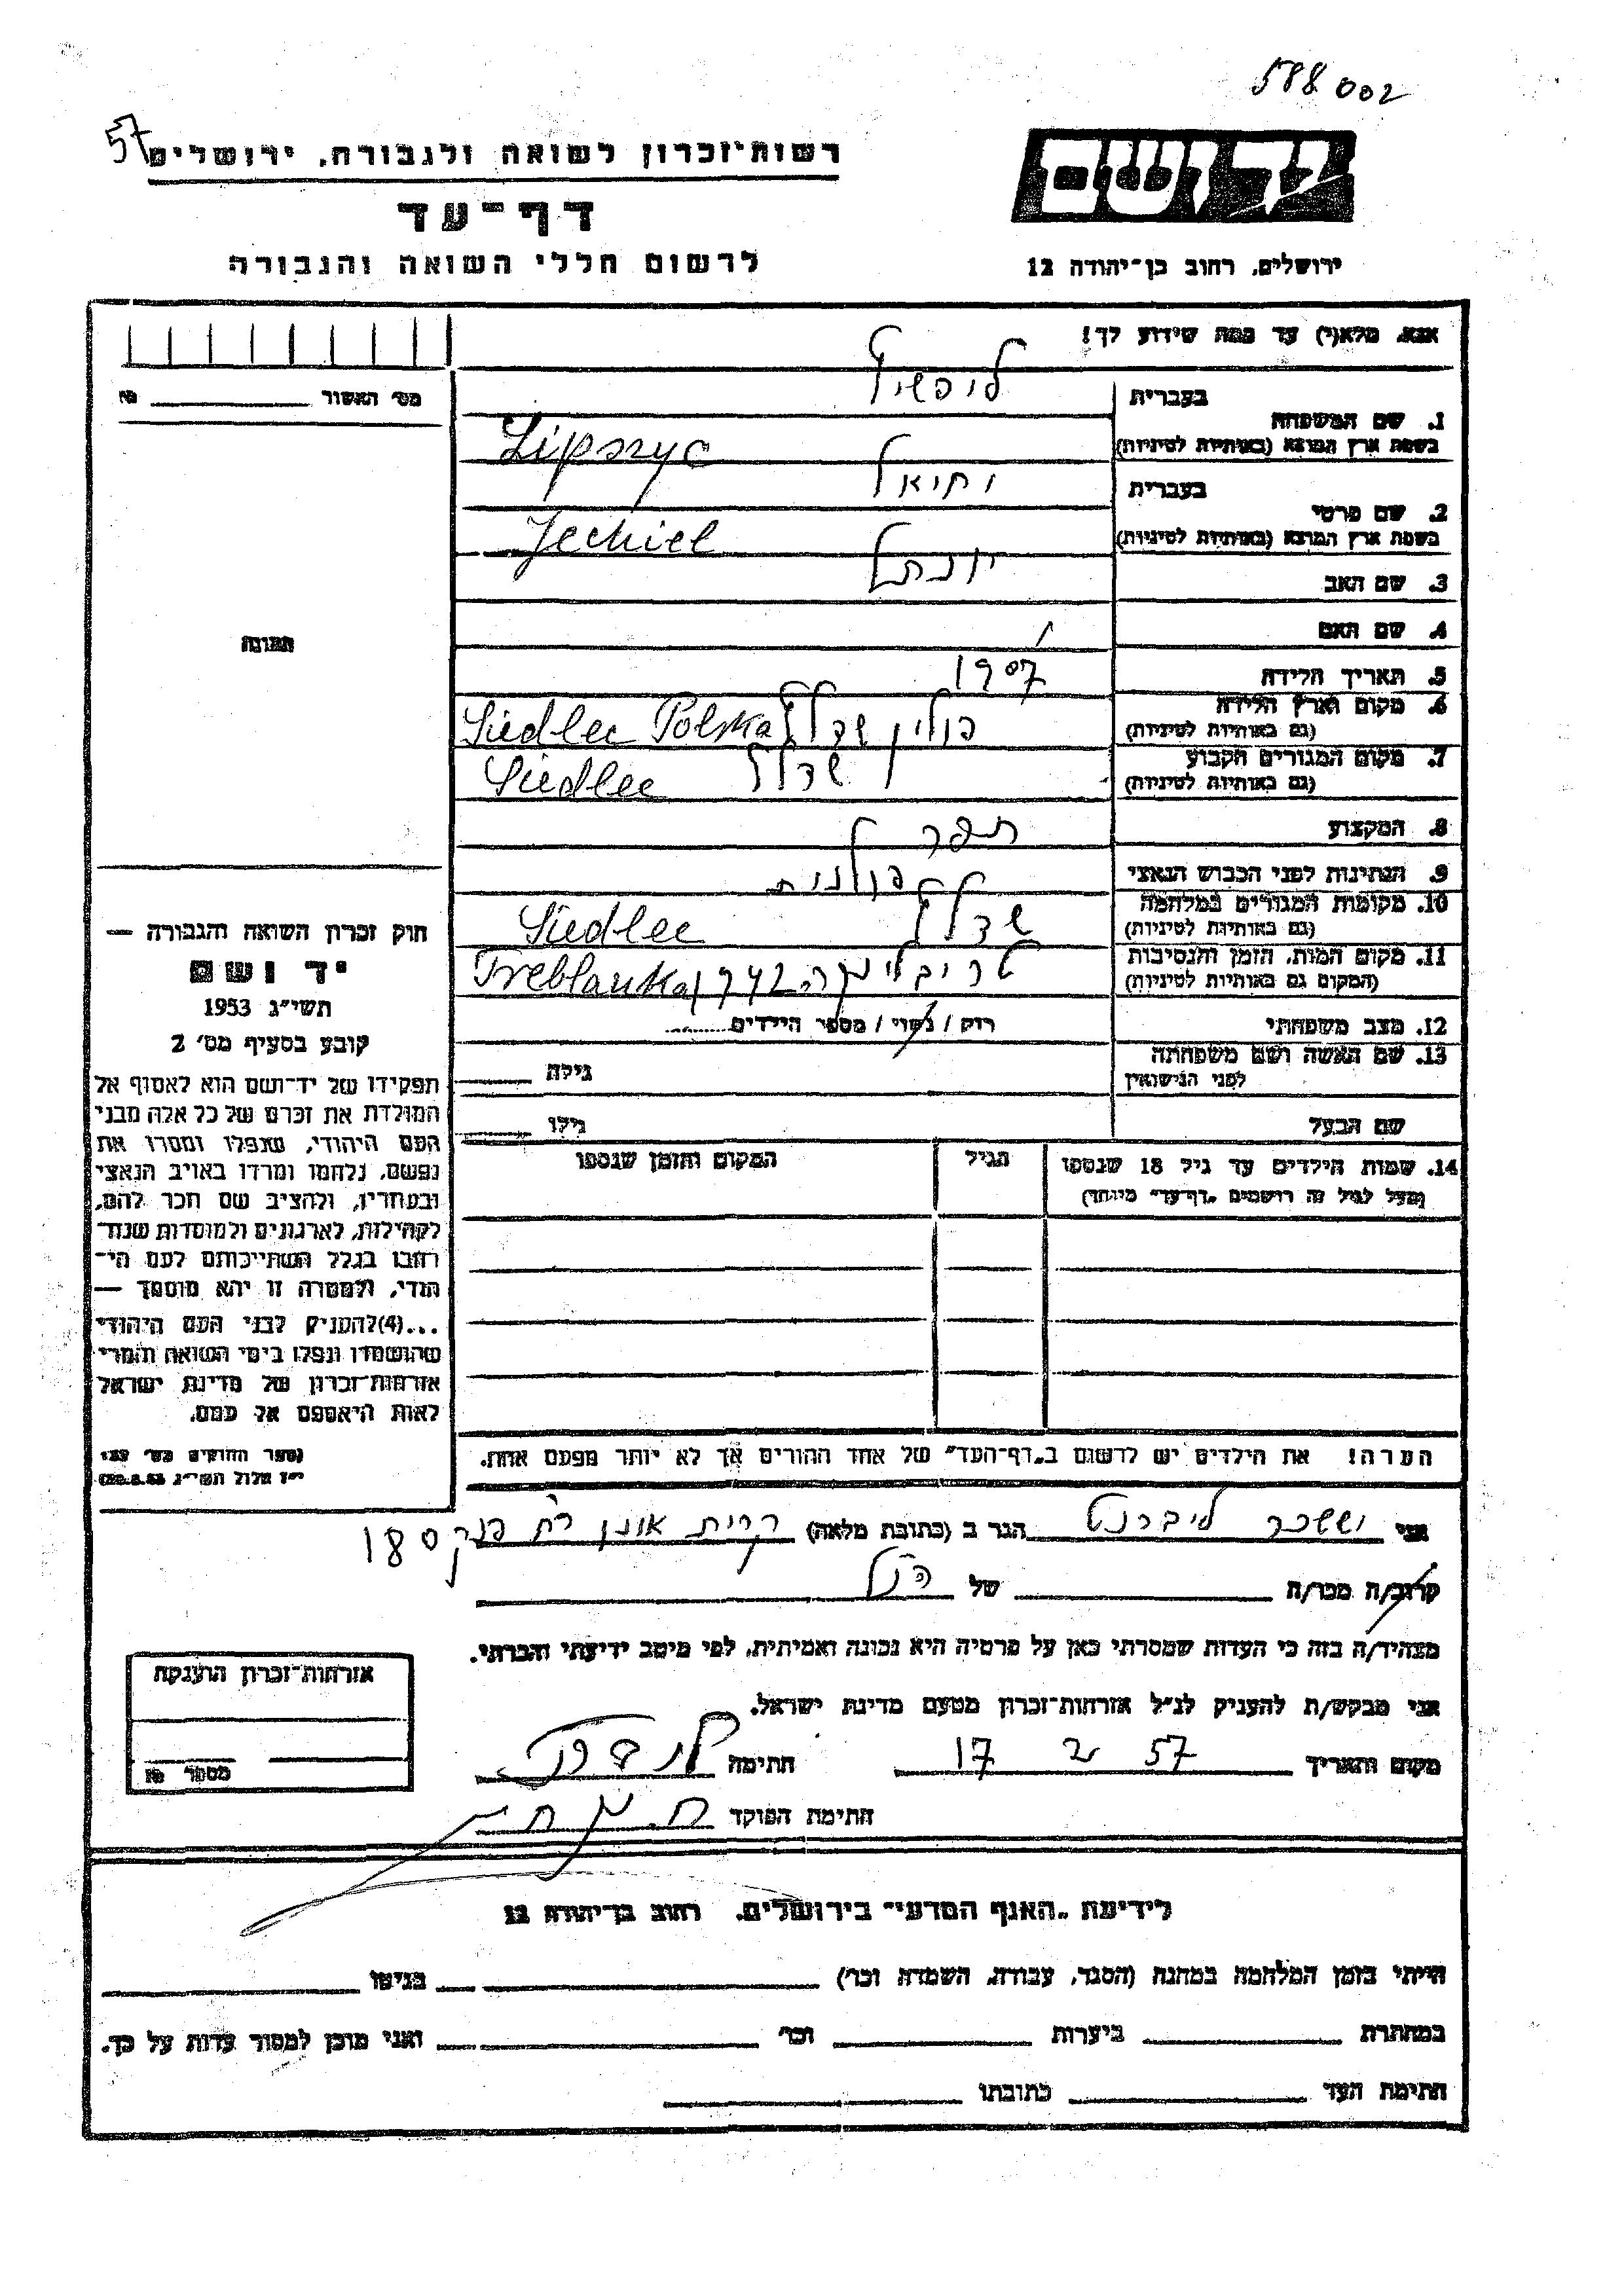 588002
57
רשות־זכרון לשואה ולגבורה, ירושלים
יד ושם
דף־עד
לרשום חללי השואה והגבורה
ירושלים, רחוב בן־יהודה 12
אנא, מלא(י) עד כמה שידוע לך!
מס' האשור № ________
1. שם המשפחה בעברית ליפשיץ
בשפת ארץ המוצא (באותיות לטיניות) Lipszyc
2. שם פרטי בעברית יחיאל
בשפת ארץ המוצא (באותיות לטיניות) Jechiel
3. שם האב יונתל
4. שם האם /
5. תאריך הלידה 1907
6. מקום וארץ הלידה פולין שדלץ Siedlec Polska
(גם באותיות לטיניות)
7. מקום המגורים הקבוע שדלץ Siedlec
(גם באותיות לטיניות)
8. המקצוע תפר
9. הנתינות לפני הכבוש הנאצי פולנית
10. מקומות המגורים במלחמה שדלץ Siedlec
(גם באותיות לטיניות)
11. מקום המות, הזמן והנסיבות טריבלינקה 1942 Treblanka
(המקום גם באותיות לטיניות)
12. מצב משפחתי רוק / נשוי / מספר הילדים
13. שם האשה ושם משפחתה גילה
לפני הנישואין
שם הבעל גילו
14. שמות הילדים עד גיל 18 שנספו הגיל המקום והזמן שנספו
(מעל לגיל זה רושמים „דף־עד” מיוחד)
הערה! את הילדים יש לרשום ב„דף־העד” של אחד ההורים אך לא יותר מפעם אחת.
תמונה
חוק זכרון השואה והגבורה —
יד ושם
תשי״ג 1953
קובע בסעיף מס׳ 2
תפקידו של יד־ושם הוא לאסוף אל
המולדת את זכרם של כל אלה מבני
העם היהודי, שנפלו ומסרו את
נפשם, נלחמו ומרדו באויב הנאצי
ובעוזריו, ולהציב שם וזכר להם,
לקהילות, לארגונים ולמוסדות שנח־
רבו בגלל השתייכותם לעם הי־
הודי, ולמטרה זו יהא מוסמך —
...(4) להעניק לבני העם היהודי
שהושמדו ונפלו בימי השואה והמרי
אזרחות־זכרון של מדינת ישראל
לאות היאספם אל עמם.
(ספר החוקים מס׳ 132
י״ז אלול תשי״ג 28.8.53)
אני יששכר ליברנט הגר ב (כתובת מלאה) קרית אונו רח פנקס 180
קרוב/ה מכר/ה ________ של הנ"ל
מצהיר/ה בזה כי העדות שמסרתי כאן על פרטיה היא נכונה ואמיתית, לפי מיטב ידיעתי והכרתי.
אני מבקש/ת להעניק לנ״ל אזרחות־זכרון מטעם מדינת ישראל.
מקום ותאריך 17 2 57 חתימה
חתימת הפוקד
אזרחות־זכרון הוענקה
מספר №
לידיעת „האגף המדעי” בירושלים, רחוב בן־יהודה 12
הייתי בזמן המלחמה במחנה (הסגר, עבודה, השמדה וכו׳) ________ בגיטו ________
במחתרת ________ ביערות ________ וכו׳ ________ ואני מוכן למסור עדות על כך.
חתימת העד ________ כתובתו ________